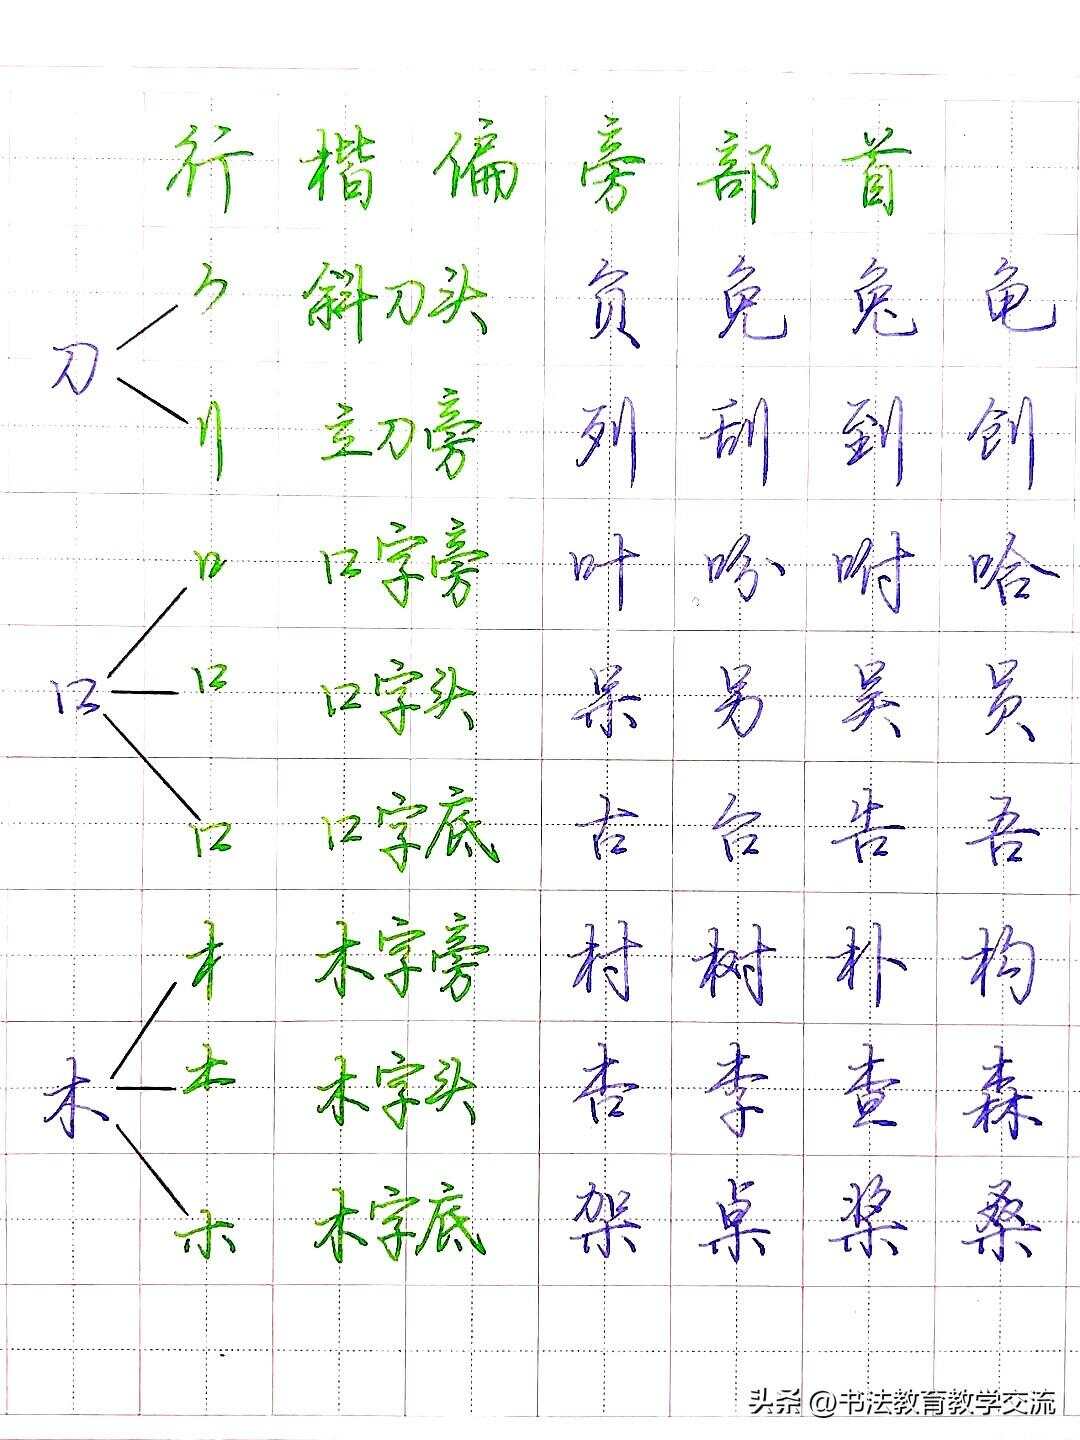 行楷偏旁部首
刀
⺈ 斜刀头 负 免 兔 龟
刂 立刀旁 列 刮 到 创
口
口 口字旁 叶 吩 咐 哈
口 口字头 呆 另 吴 员
口 口字底 古 台 告 吾
木
木 木字旁 村 树 朴 构
木 木字头 杏 李 查 森
木 木字底 架 桌 桨 桑
头条 @书法教育教学交流